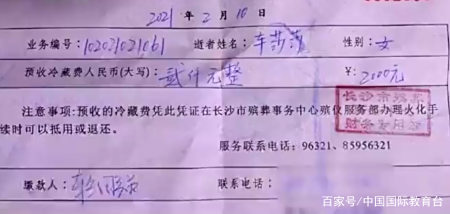 2021 年 2 月 10 日
业务编号:102021021061 逝者姓名:车莎莎 性别:女
预收冷藏费人民币(大写):贰仟元整 ¥:2000元
注意事项:预收的冷藏费凭此凭证在长沙市殡葬事务中心殡仪服务部办理火化手
续时可以抵用或退还。
长沙市殡葬
财务专用章
服务联系电话:96321、85956321
缴款人: 联系电话:
百家号/中国国际教育台